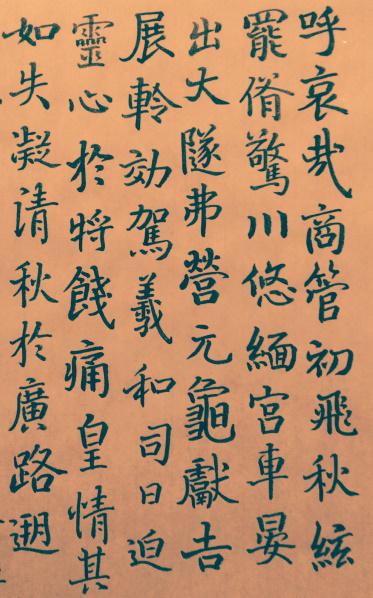 呼哀哉商管初飛秋絃
罷脩驚川悠緬宮車晏
出大隧弗營元龜獻吉
展軨効駕羲和司日迫
靈心於將餞痛皇情其
如失凝清秋於廣路